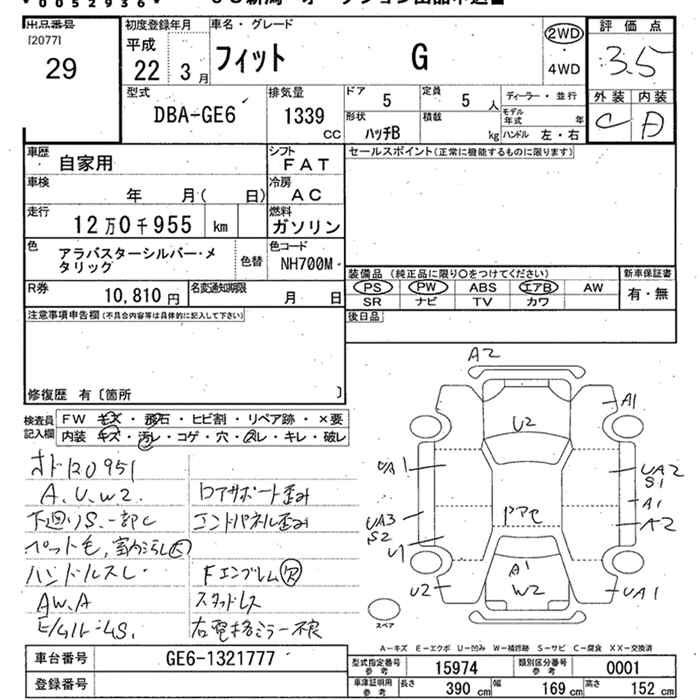 0052936
出品番号
[2077]
29
初度登録年月
平成
22 3 月
車名・グレード
フィット G
2WD
4WD
評価点
3.5
外装 内装
C B
型式
DBA-GE6
排気量
1339
CC
ドア 5
定員 5 人
形状
ハッチB
積載 kg
ディーラー・並行
モデル年式 年
ハンドル 左・右
車歴
自家用
シフト
FAT
車検
年 月( 日)
冷房
AC
走行
12万0千955 km
燃料
ガソリン
色
アラバスターシルバー・メ
タリック
色替
色コード
NH700M
R券
10,810 円
名変通知期限
月 日
セールスポイント(正常に機能するものに限ります)
装備品 (純正品に限り○をつけてください)
新車保証書
PS PW ABS エアB AW
有・無
SR ナビ TV カワ
後日品
注意事項申告欄(不具合内容等は具体的に記入して下さい)
修復歴 有〔箇所 〕
検査員
記入欄
FW キズ・飛石・ヒビ割・リペア跡・×要
内装・キズ・汚レ・コゲ・穴・スレ・キレ・破レ
オドR20951
A.U.W2.
下廻りS.一部C
ペット毛,室内汚レ大
ハンドルスレ.
AW.A
コアサポート歪み
エンドパネル歪み
Fエンブレム欠
スタッドレス
右電格ミラー不良
A2
A1
U2
UA1
UA2
S1
A1
A2
UA3
S2
U1
ドアモ
A1
W2
U2
UA1
スペア
A-キズ E-エクボ U-凹み W-補修跡 S-サビ C-腐食 XX-交換済
車台番号
GE6-1321777
登録番号
型式指定番号
参考
15974
類別区分番号
参考
0001
車庫証明用
参考
長さ 390 cm 幅 169 cm 高さ 152 cm